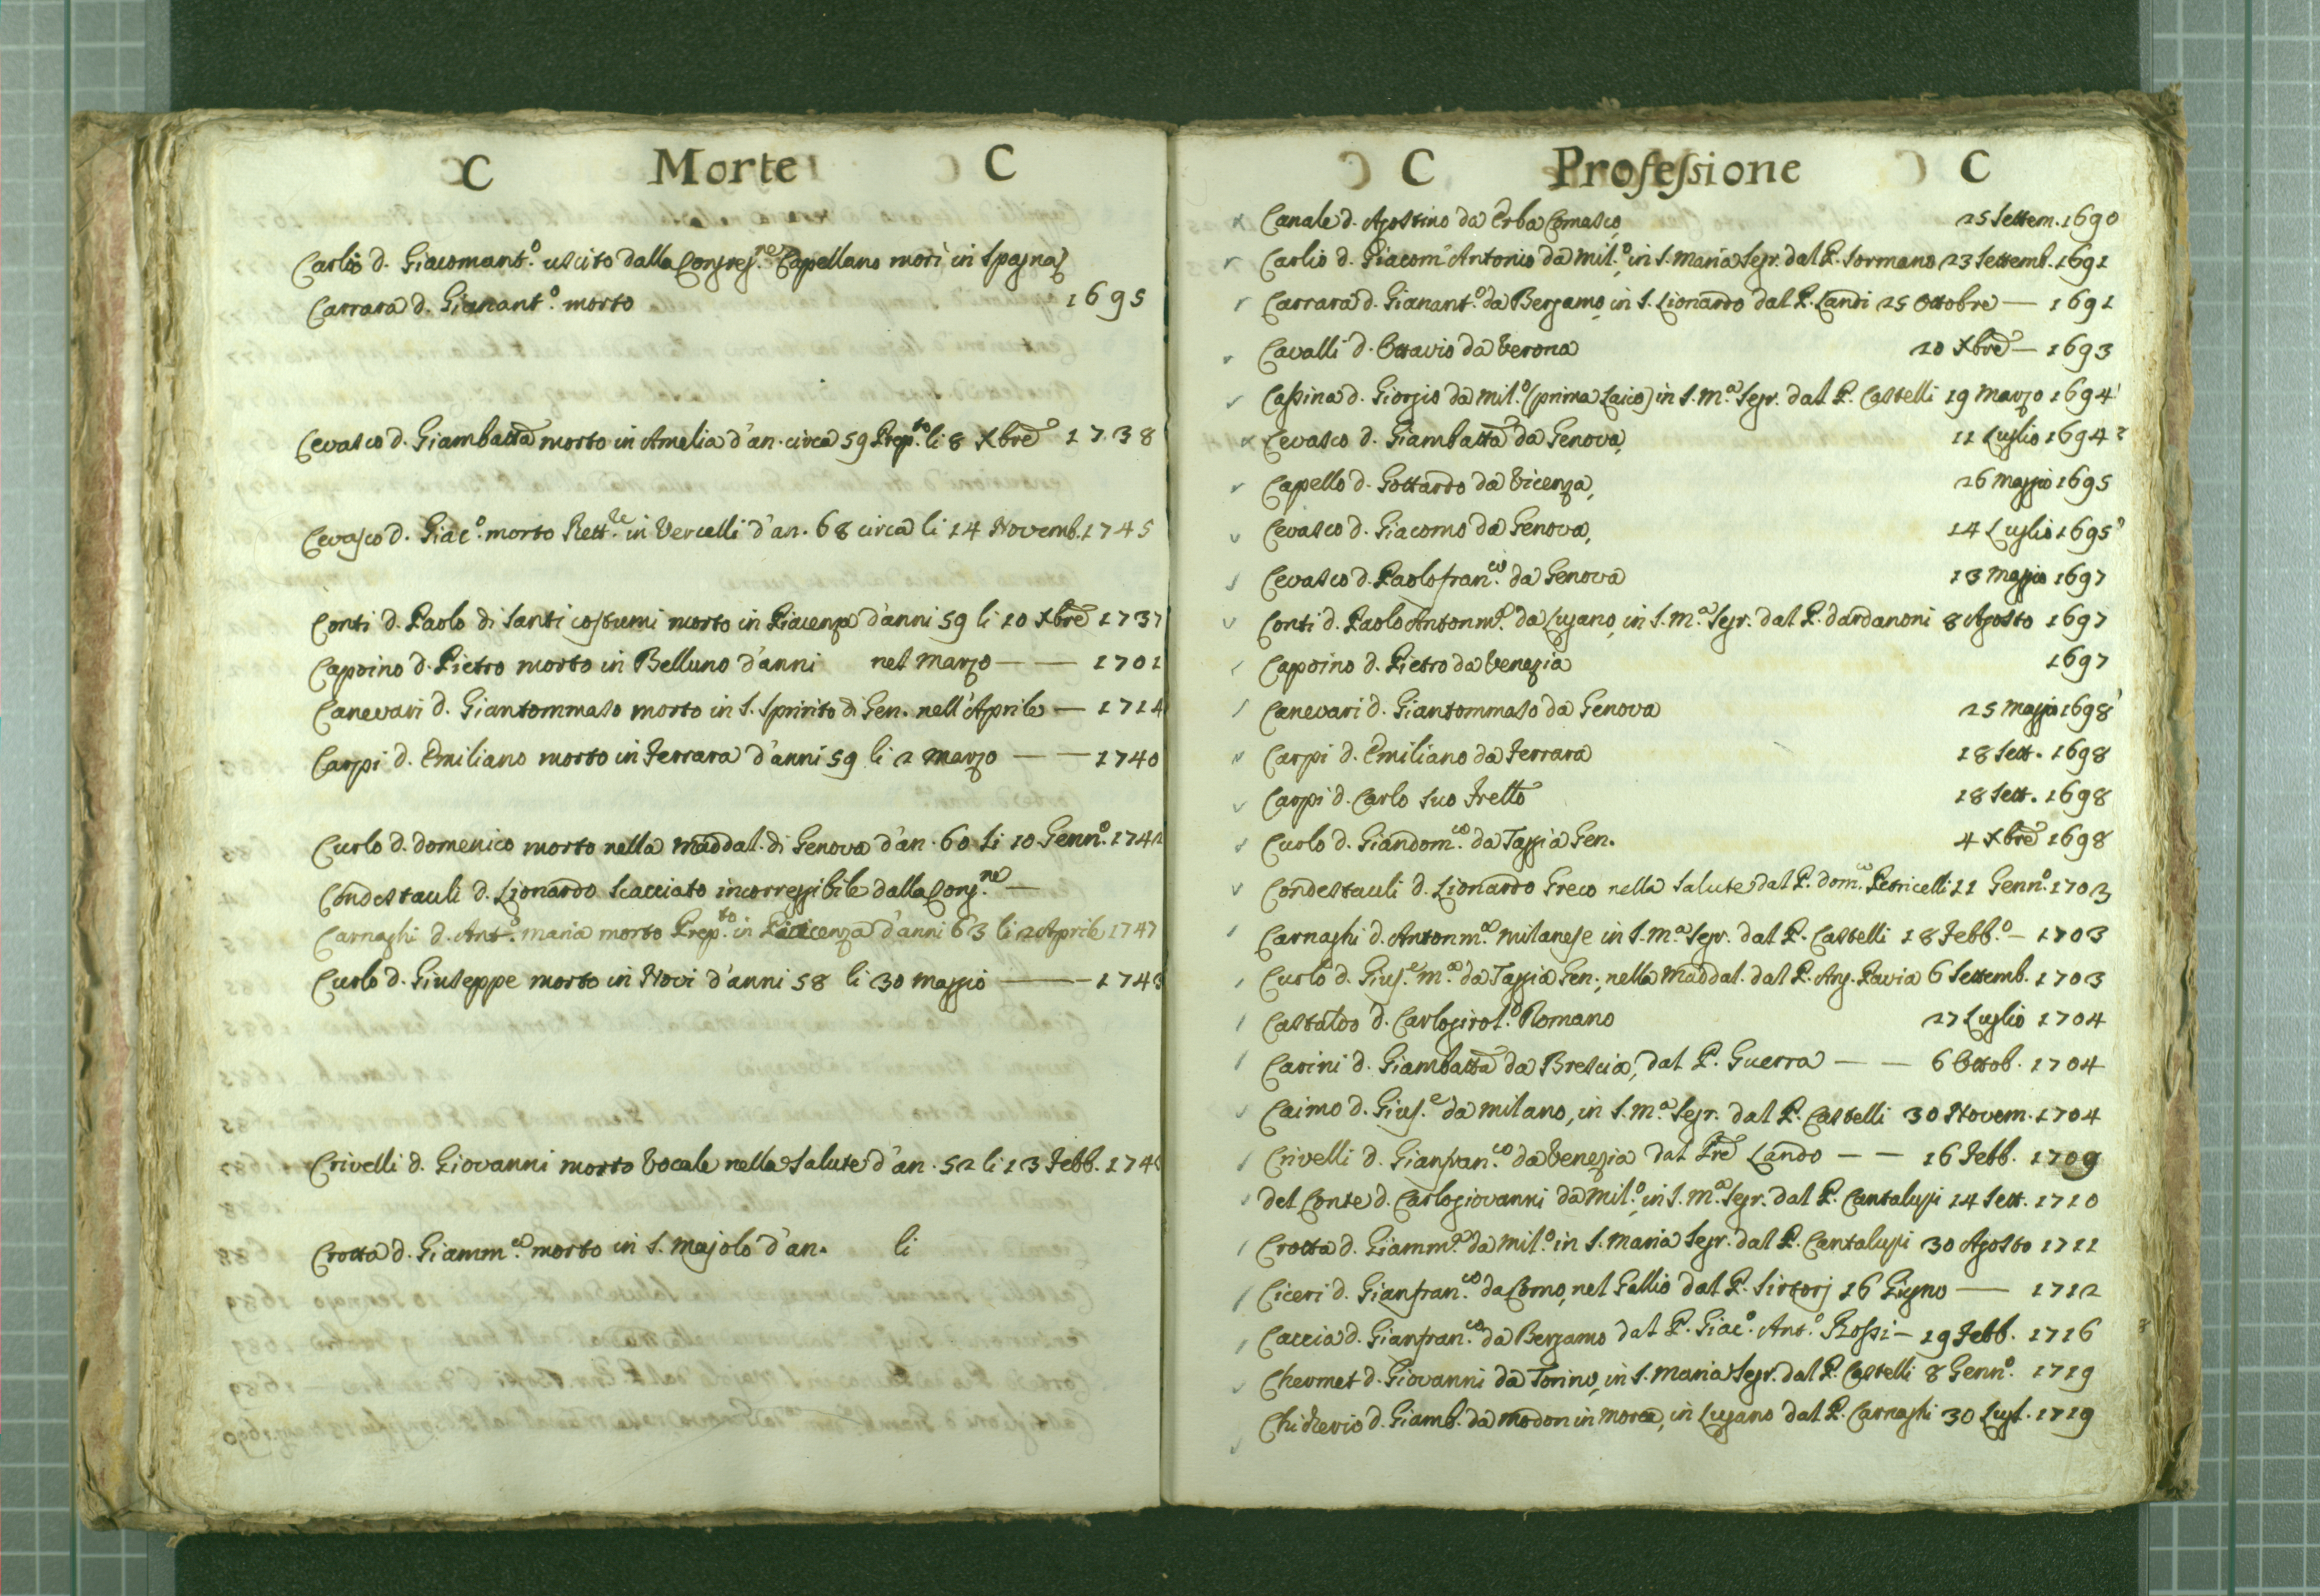 C Morte C
Carlio d. Giacomant.º uscito dalla Congreg.ne Capellano morì in Spagna
Carrara d. Gianant.º morto 1695
Cevasco d. Giambatta morto in Amelia d'an. circa 59 Prep.to li 8 Xbre 1738
Cevasco d. Giac.º morto Rett.re in Vercelli d'an. 68 circa li 14 Novemb. 1745
Conti d. Paolo di santi costumi morto in Piacenza d'anni 59 li 10 Xbre 1737
Capoino d. Pietro morto in Belluno d'anni nel Marzo — — 1701
Canevari d. Giantommaso morto in S. Spirito di Gen. nell'Aprile — 1714
Carpi d. Emiliano morto in Ferrara d'anni 59 li 2 Marzo — — 1740
Curlo d. Domenico morto nella Maddal. di Genova d'an. 60 li 10 Genn.º 174
Condestauli d. Lionardo scacciato incorreggibile dalla Cong.ne —
Carnaghi d. Ant.º Maria morto Prep.to in Piacenza d'anni 63 li 2 Aprile 1747
Curlo d. Giuseppe morto in Novi d'anni 58 li 30 Maggio — 1743
Crivelli d. Giovanni morto Vocale nella Salute d'an. 52 li 13 Febb. 174
Crotta d. Giamm.a morto in S. Majolo d'an. li
C Professione C
Canale d. Agostino da Erba Comasco, 25 Settem. 1690
Carlio d. Giacom'Antonio da Mil.º, in S. Maria Segr. dal P. Sormano 23 Settemb. 1691
Carrara d. Gianant.º da Bergamo, in S. Lionardo dal P. Landi 25 Ottobre — 1691
Cavalli d. Ottavio da Verona 20 Xbre — 1693
Cassina d. Giorgio da Mil.º (prima Laico) in S. M.a Segr. dal P. Castelli 19 Marzo 1694
Cevasco d. Giambatta da Genova, 11 Luglio 1694
Capello d. Gottardo da Vicenza, 26 Maggio 1695
Cevasco d. Giacomo da Genova, 14 Luglio 1695
Cevasco d. Paolofran.co da Genova 13 Maggio 1697
Conti d. Paolo Antonm.a da Lugano, in S. M.a Segr. dal P. Dardanoni 8 Agosto 1697
Capoino d. Pietro da Venezia 1697
Canevari d. Giantommaso da Genova 25 Maggio 1698
Carpi d. Emiliano da Ferrara 18 Sett. 1698
Carpi d. Carlo suo Frello 18 Sett. 1698
Curlo d. Giandom.co da Taggia Gen. 4 Xbre 1698
Condestauli d. Lionardo Greco nella Salute dal P. Dom.co Petricelli 11 Genn.º 1703
Carnaghi d. Antonm.a Milanese in S. M.a Segr. dal P. Castelli 18 Febb.º — 1703
Curlo d. Gius.e M.a da Taggia Gen., nella Maddal. dal P. Ang. Pavia 6 Settemb. 1703
Castaldo d. Carlogirol.º Romano 27 Luglio 1704
Carini d. Giambatta da Brescia, dal P. Guerra — — 6 Ottob. 1704
Caimo d. Gius.e da Milano, in S. M.a Segr. dal P. Castelli 30 Novem. 1704
Crivelli d. Gianfran.co da Venezia dal Pre Lando — — 16 Febb. 1709
del Conte d. Carlogiovanni da Mil.º, in S. M.a Segr. dal P. Cantalupi 14 Sett. 1710
Crotta d. Giamm.a da Mil.º in S. Maria Segr. dal P. Cantalupi 30 Agosto 1711
Ciceri d. Gianfran.co da Como, nel Gallio dal P. Sirtorj 16 Giugno — 1712
Caccia d. Gianfran.co da Bergamo dal P. Giac.º Ant.º Rossi — 19 Febb. 1716
Chevmet d. Giovanni da Torino, in S. Maria Segr. dal P. Castelli 8 Genn.º 1719
d. Giamb. da Modon in Morea, in Lugano dal P. Carnaghi 30 Lugl. 1719